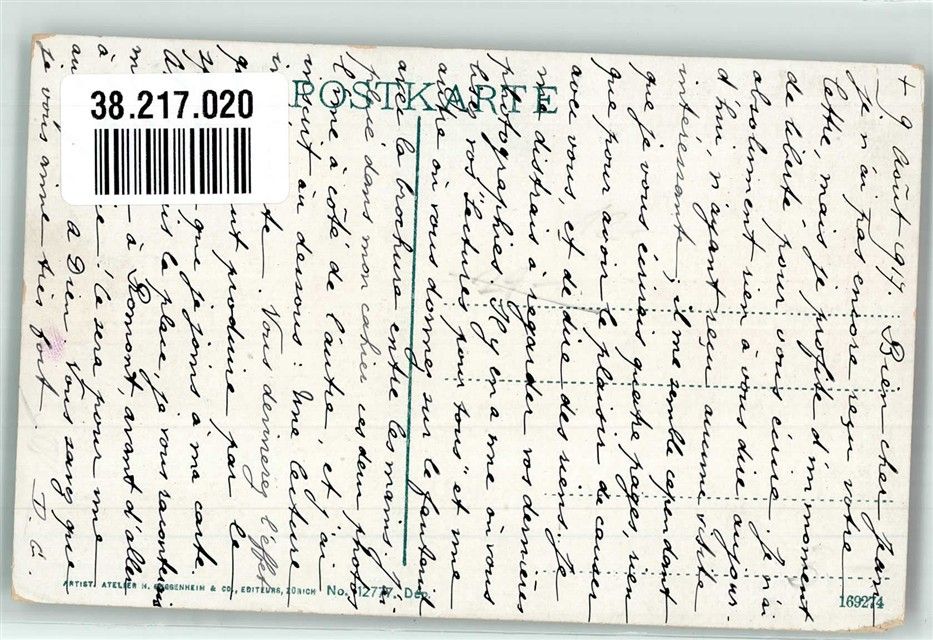 38.217.020
POSTKARTE
+ 9 Août 1917. Bien cher Jean
Je n'ai pas encore reçu votre
lettre, mais je profite d'un moment
de liberté pour vous écrire. Je n'ai
absolument rien à vous dire aujour-
d'hui, n'ayant reçu aucune visite
intéressante; il me semble cependant
que je vous écrirais quatre pages, rien
que pour avoir le plaisir de causer
avec vous, et de dire des riens. Je
me distrais à regarder vos dernières
photographies. Il y en a une où vous
lisez vos "Lectures pour tous" et une
autre où vous dormez sur le fauteuil
avec la brochure entre les mains. J'ai
piqué dans mon cahier ces deux photos
l'une à côté de l'autre, et j'ai
au dessous: Une lecture
te. Vous devinez l'effet
produire par le
que je joins à ma carte.
la place, je vous raconterais
à Romont, avant d'aller
ce sera pour une
à Dieu. Vous savez que
je vous aime très fort
ARTIST. ATELIER H. GUGGENHEIM & CO., EDITEURS, ZÜRICH No. 12777. Dép.
169274